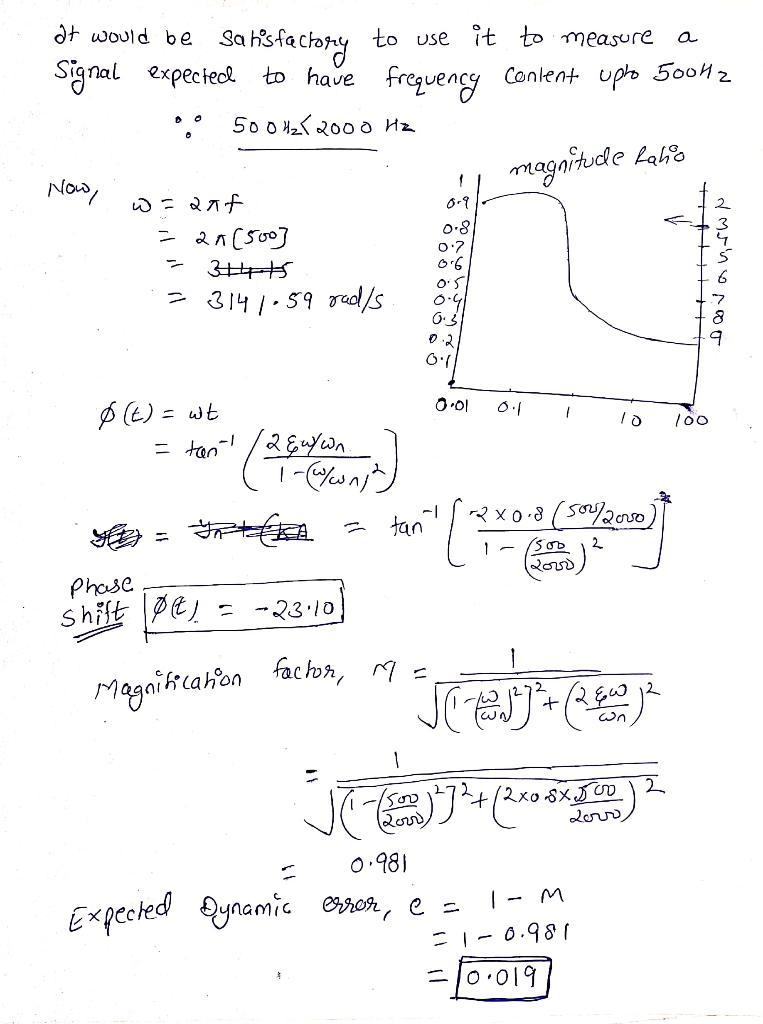 It would be satisfactory to use it to measure a
Signal expected to have frequency content upto 500Hz
∵ 500Hz < 2000 Hz
Now,
ω = 2πf
= 2π[500]
= 3141.59 rad/s
magnitude Ratio
1
0.9
0.8
0.7
0.6
0.5
0.4
0.3
0.2
0.1
2
3
4
5
6
7
8
9
0.01 0.1 1 10 100
φ(t) = ωt
= tan⁻¹ (2ξω/ωn / 1-(ω/ωn)²)
= tan⁻¹ [-2 x 0.8 (500/2000) / 1 - (500/2000)²]
Phase
Shift φ(t) = -23.10
Magnification factor, M = 1 / √[1-(ω/ωn)²]² + (2ξω/ωn)²
= 1 / √[1-(500/2000)²]² + (2x0.8x500/2000)²
= 0.981
Expected Dynamic error, e = 1 - M
= 1 - 0.981
= 0.019